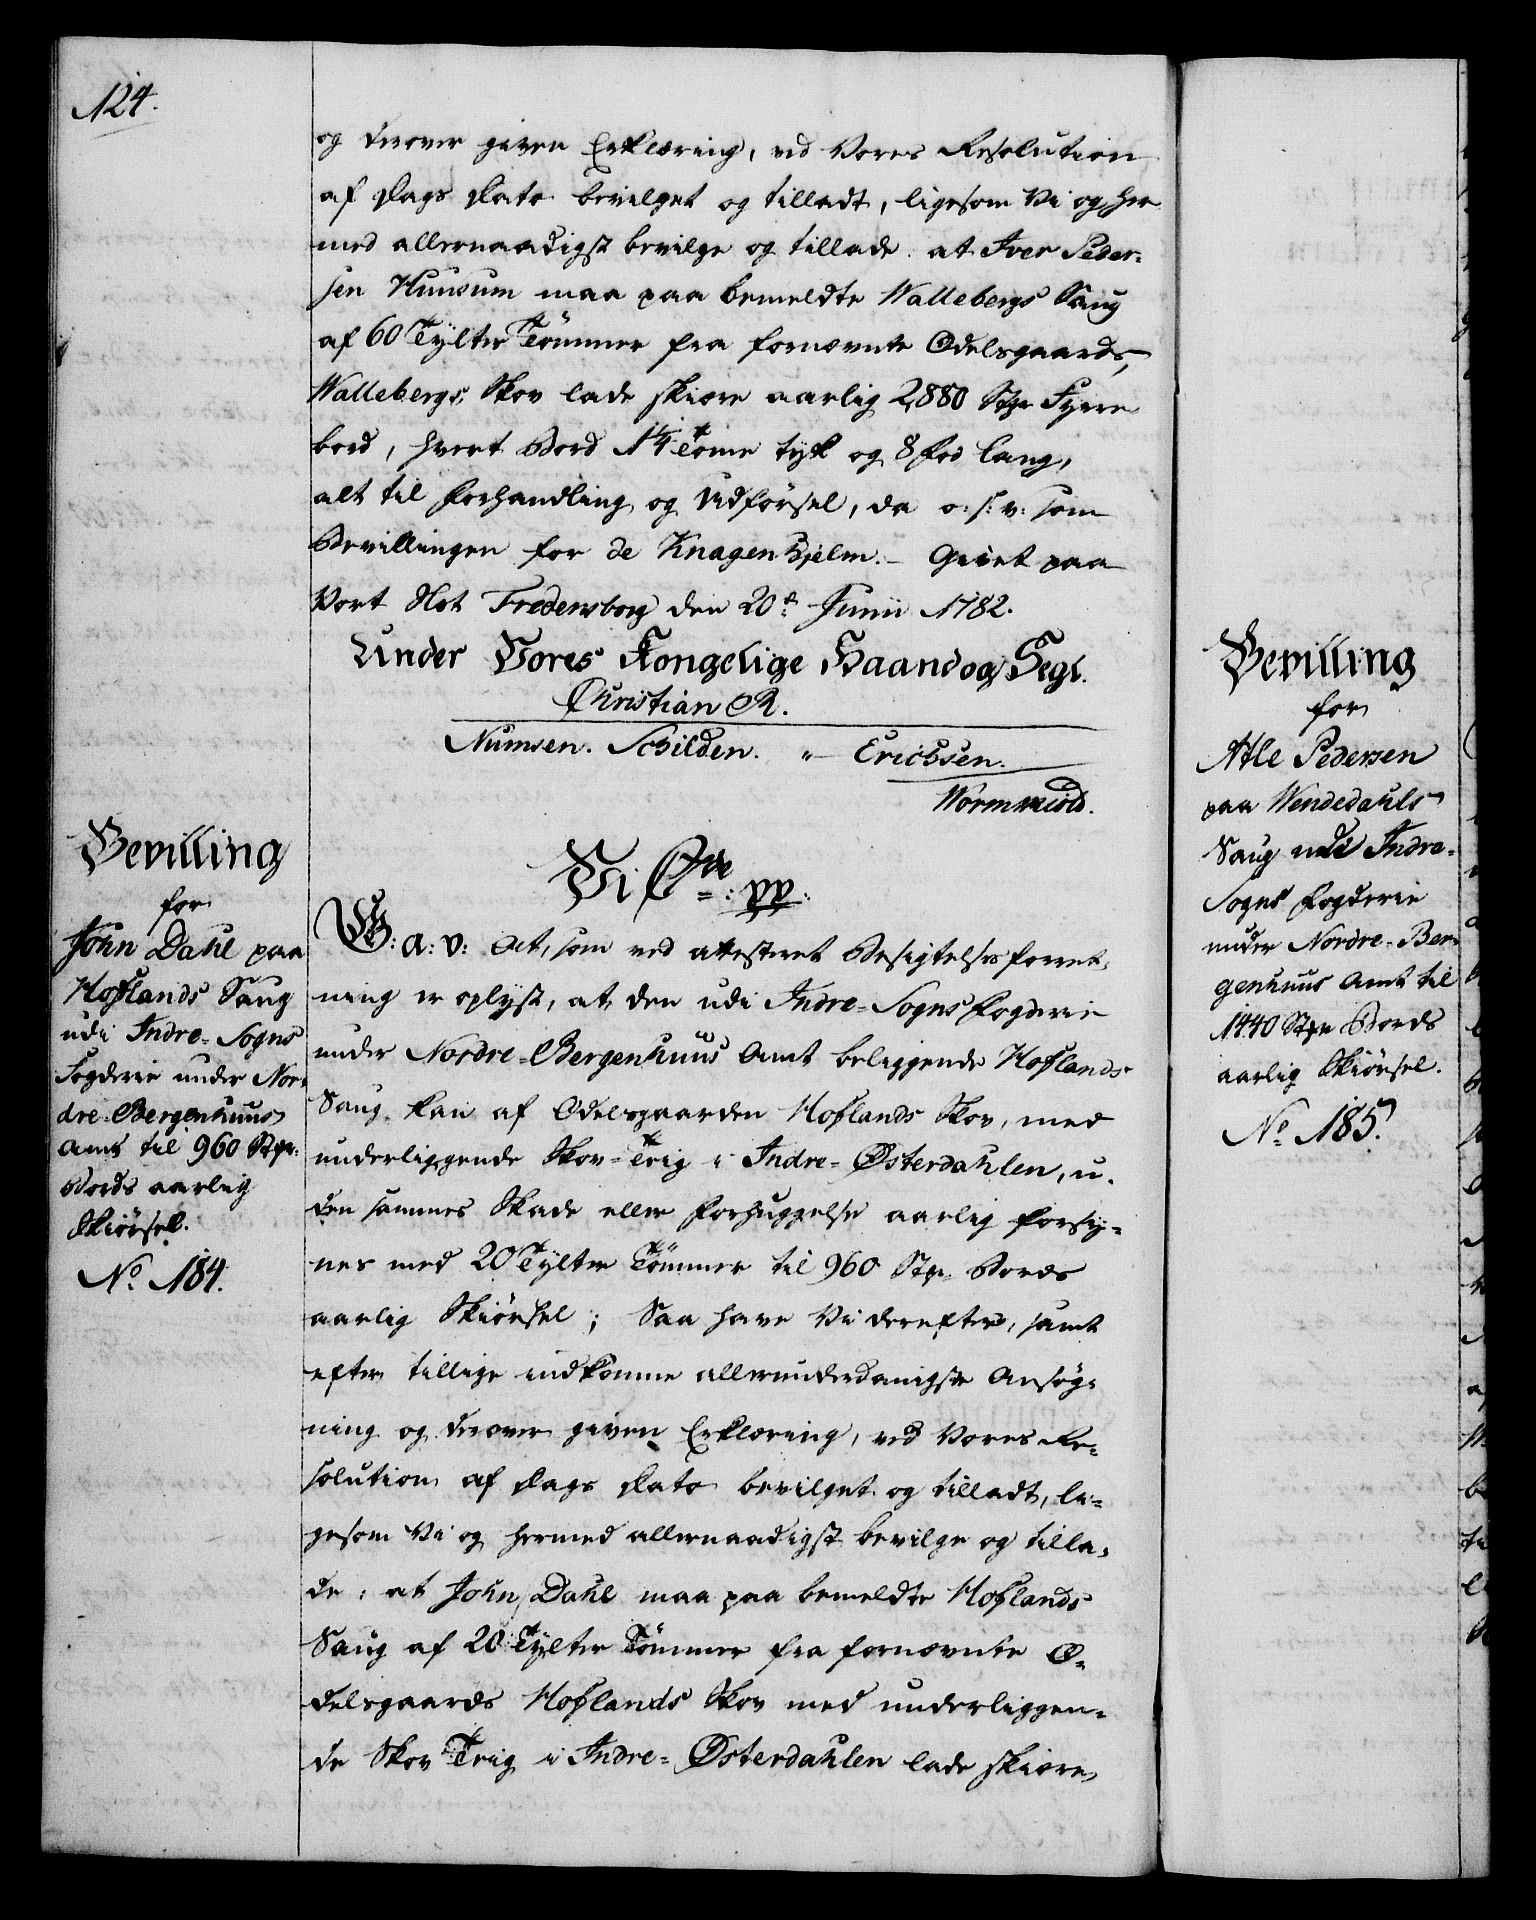 124.
og derover given Erklæring, ved Vores Resolution
af Dags Dato bevilget og tilladt, ligesom Vi og her-
med allernaadigst bevilge og tillade: at Iver Peder-
sen Huusum maa paa bemeldte Wallebergs Saug
af 60 Tylter Tømmer fra fornævnte Odelsgaards,
Wallebergs, Skov lade skiære aarlig 2,880 Stkr Fyrre
bord, hvert Bord 1¼ Tomme tyk og 8 Fod lang,
alt til Forhandling og Udførsel, da o: s: v: som
Bevillingen for de Knagenhjelm. – Givet paa
Vort Slot Fredensborg den 20de Junii 1782.
Under Vores Kongelige Haand og Segl.
Christian R.
Numsen. Schilden. " Erichsen.
Wormskiold.
Bevilling
for
John Dahl paa
Hoflands Saug
udi Indre-Sogns
Fogderie under Nor-
dre-Bergenhuus
Amt til 960 Stkr.
Bords aarlig
Skiørsel.
No. 184.
Vi C 7de :pp:
G: a: v: At, som ved attesteret Besigtelses Forret-
ning er oplyst, at den udi Indre-Sogns Fogderie
under Nordre-Bergenhuus Amt beliggende Hoflands
Saug kan af Odelsgaarden Hoflands Skov, med
underliggende Skov-Teig i Indre-Østerdahlen, u-
den sammes Skade eller Forhuggelse aarlig forsy-
nes med 20 Tylter Tømmer til 960 Stkr. Bords
aarlig Skiørsel; Saa have Vi derefter, samt
efter tillige indkomne allerunderdanigste Ansøg-
ning og derover given Erklæring, ved Vores Re-
solution af Dags Dato bevilget og tilladt, li-
gesom Vi og hermed allernaadigst bevilge og tilla-
de: at John Dahl maa paa bemeldte Hoflands
Saug af 20 Tylter Tømmer fra fornævnte O-
delsgaards Hoflands Skov med underliggen-
de Skov Teig i Indre-Østerdahlen lade skiære
Bevilling
for
Atle Pedersen
paa Wendedahls
Saug udi Indre-
Sogns Fogderie
under Nordre-Ber-
genhuus Amt til
1440 Stkr Bords
aarlig Skiørsel.
No. 185.